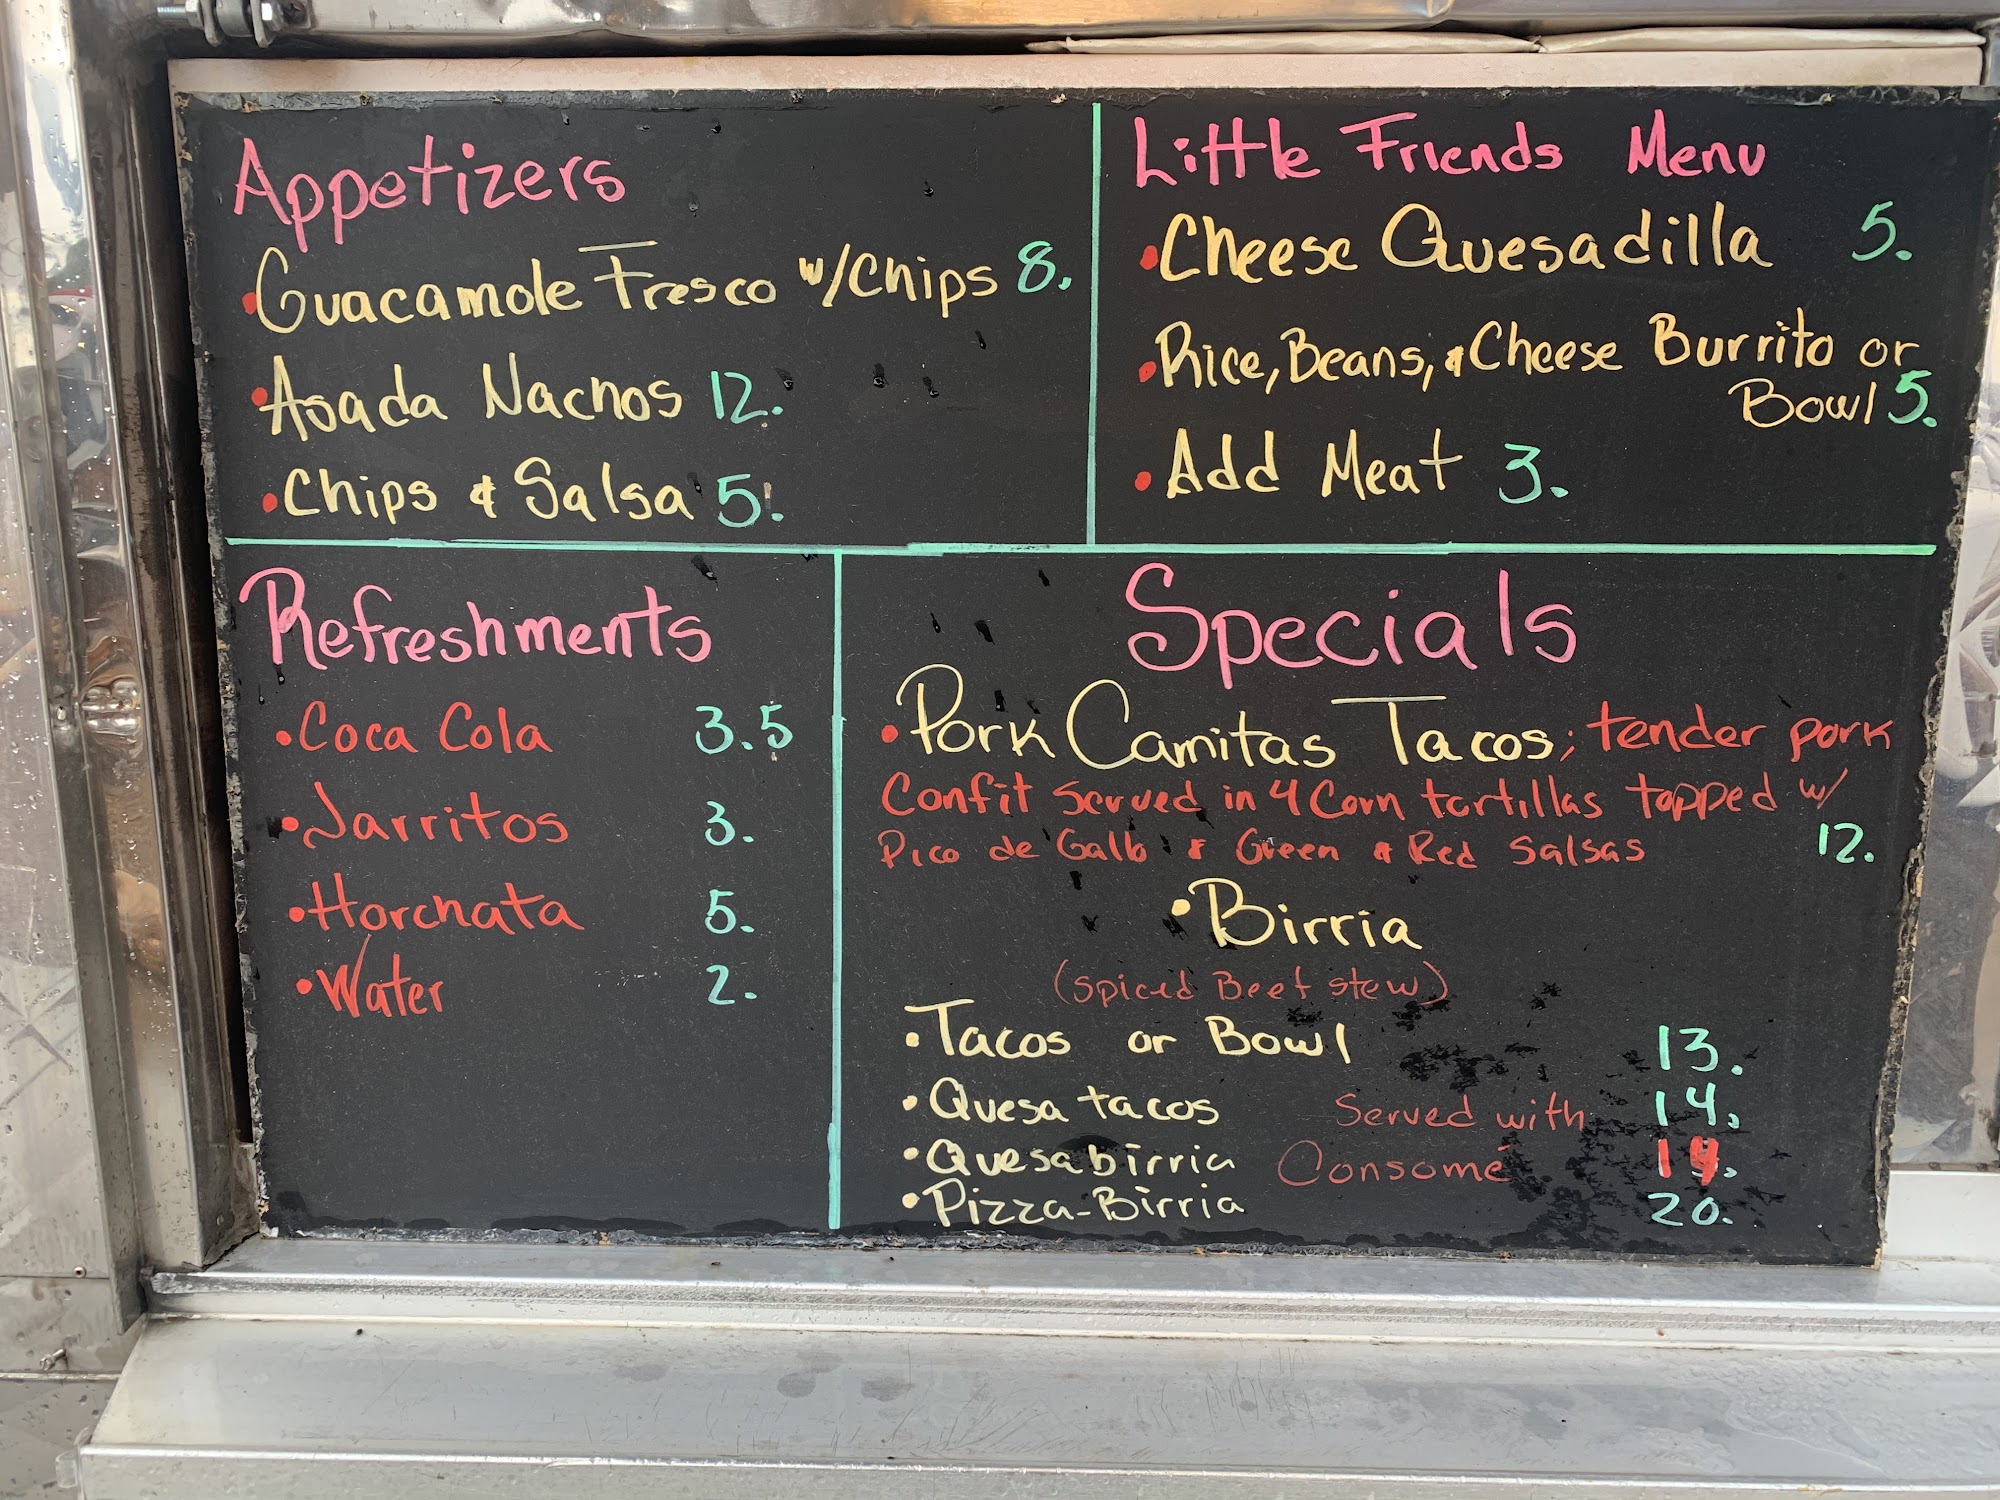 Appetizers
•Guacamole Fresco w/Chips 8.
•Asada Nachos 12.
•Chips & Salsa 5.
Little Friends Menu
•Cheese Quesadilla 5.
•Rice, Beans, & Cheese Burrito or
Bowl 5.
•Add Meat 3.
Refreshments
•Coca Cola 3.5
•Jarritos 3.
•Horchata 5.
•Water 2.
Specials
•Pork Carnitas Tacos; tender pork
Confit served in 4 Corn tortillas topped w/
Pico de Gallo & Green & Red Salsas 12.
•Birria
(Spiced Beef stew)
•Tacos or Bowl 13.
•Quesa tacos Served with 14.
•Quesabirria Consomé 14.
•Pizza-Birria 20.